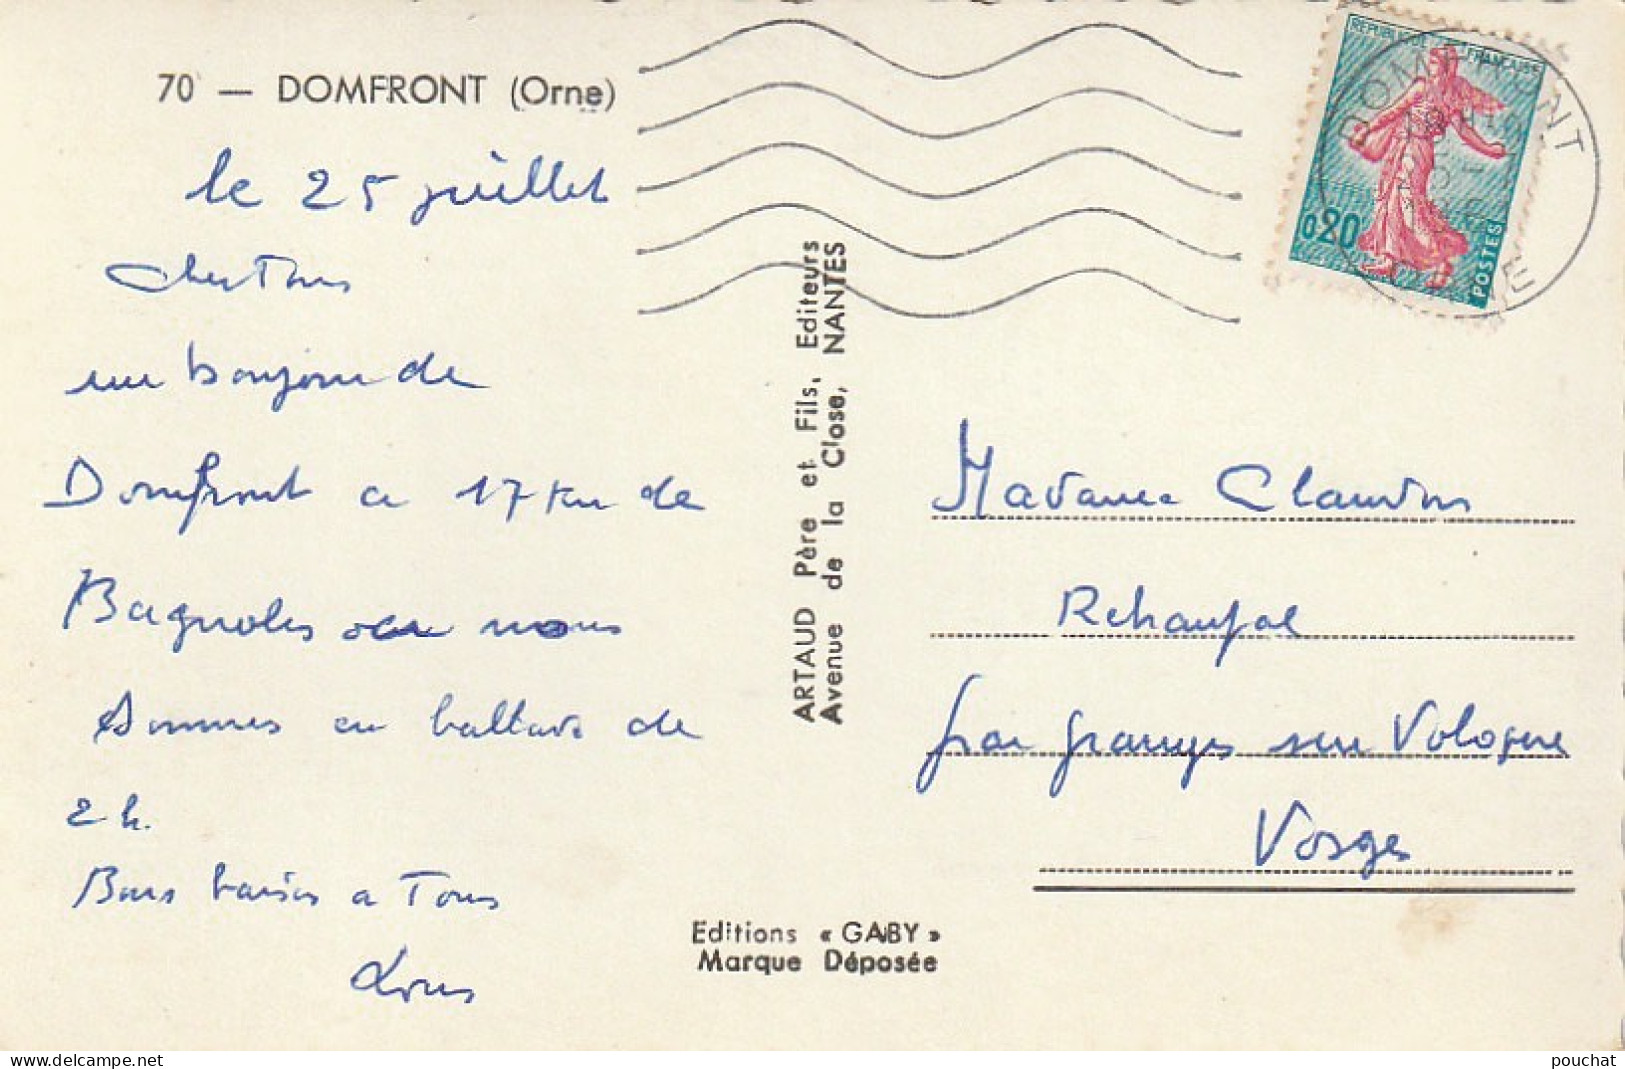 70 — DOMFRONT (Orne)
le 25 juillet
Chers Tous
un bonjour de
Domfront a 17 km de
Bagnoles ou nous
sommes en ballade de
2 h.
Bons baisers a Tous
ARTAUD Père et Fils, Editeurs
Avenue de la Close, NANTES
Editions « GABY »
Marque Déposée
REPUBLIQUE FRANÇAISE
0,20
POSTES
DOMFRONT
ORNE
Madame Claudon
Rehaupal
par Granges sur Vologne
Vosges
delcampe.net
pouchat